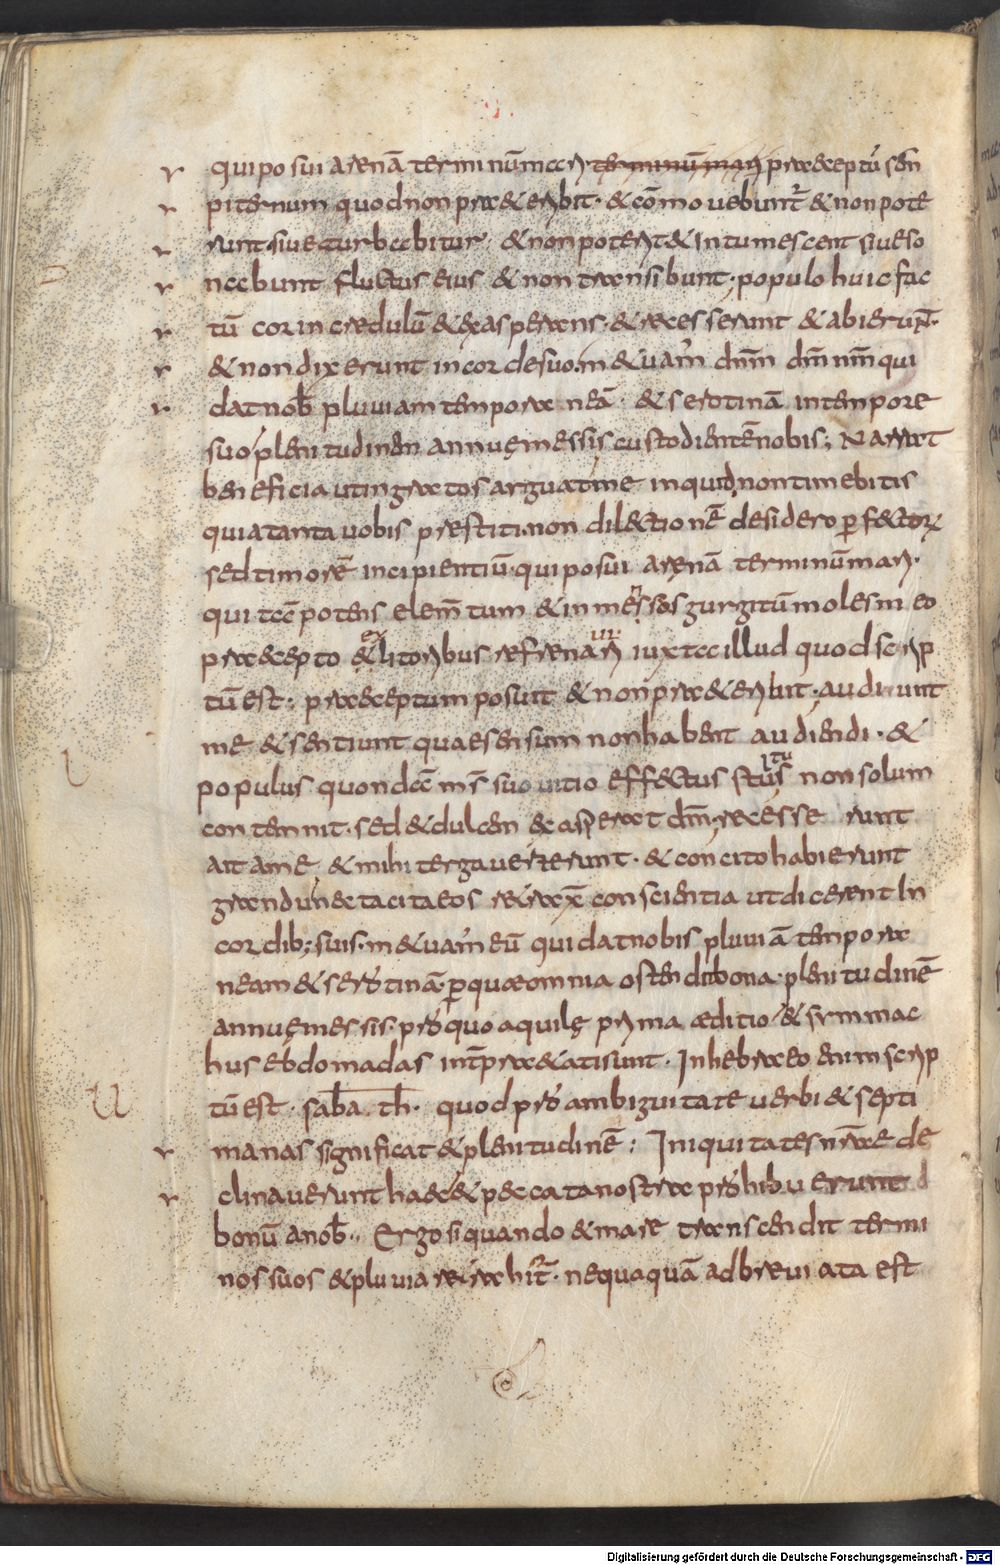 qui posui arenā terminū mari terminū mari praeceptū sem
piternum quod non praeteribit · & cōmovebunt᷑ & non pote
runt · sive turbabitur · & non poterit & intumescent sive so
nabunt fluctus eius & non transibunt · populo huic fac
tū cor incredulū & exasperans · & recesserunt & abierunt ·
& non dixerunt in corde suo · metuam᷑ dn̄m dm̄ nr̄m qui
dat nob̄ pluviam temporaneā · & serotinā in tempore
suo plenitudinem annuę messis custodientē nobis ; Narrat
beneficia ut ingratos arguat me inquid non timebitis
qui a tanta vobis prestiti · non dilectionē desidero ꝑfectorū
sed timorē incipientiū · qui posui arenā terminū mari ·
qui tā potens elem̄tum & inmensos gurgitū moles meo
praecepto ex litoribus refrenavi iuxta illud quod scrip
tū est · praeceptum posuit & non praeteribit · audiunt
me & sentiunt quae sensum non habent audiendi · &
populus quondā ms̄ suo vitio effectus stultus non solum
contemnit · sed & dulcem exasperat dm̄ · recesserunt
ait a me & mihi terga verterunt · & concito habierunt
gradu · nec tacita eos retrax̄ conscientia ut dicerent In
cordib; suis · metuam᷑ eū qui dat nobis pluviā tempora
neam & serotinā · ꝑ quae omnia ostendit bona · plenitudinē
annuę messis · pro quo aquilę prima aeditio & symmac
hus ebdomadas int̄praetati sunt · In hebraeo enim scrip
tū est · sab̄a th̄ · quod pro ambiguitate verbi & septi
manas significat & plenitudinē : Iniquitates nr̄ae de
clinaverunt haec & peccata nostra prohibuerunt
bonū a nob̄ · Ergo si quando & mare transcendit termi
nos suos & pluvia retrahit᷑ · nequaquā adbreviata est
Digitalisierung gefördert durch die Deutsche Forschungsgemeinschaft - DFG